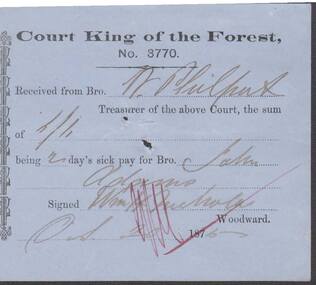 Court King of the Forest,
No. 3770.
Received from Bro. W. Philpert
Treasurer of the above Court, the sum
of
being 2 day's sick pay for Bro. John
Adams
Signed Wm
Woodward.
Oct 187